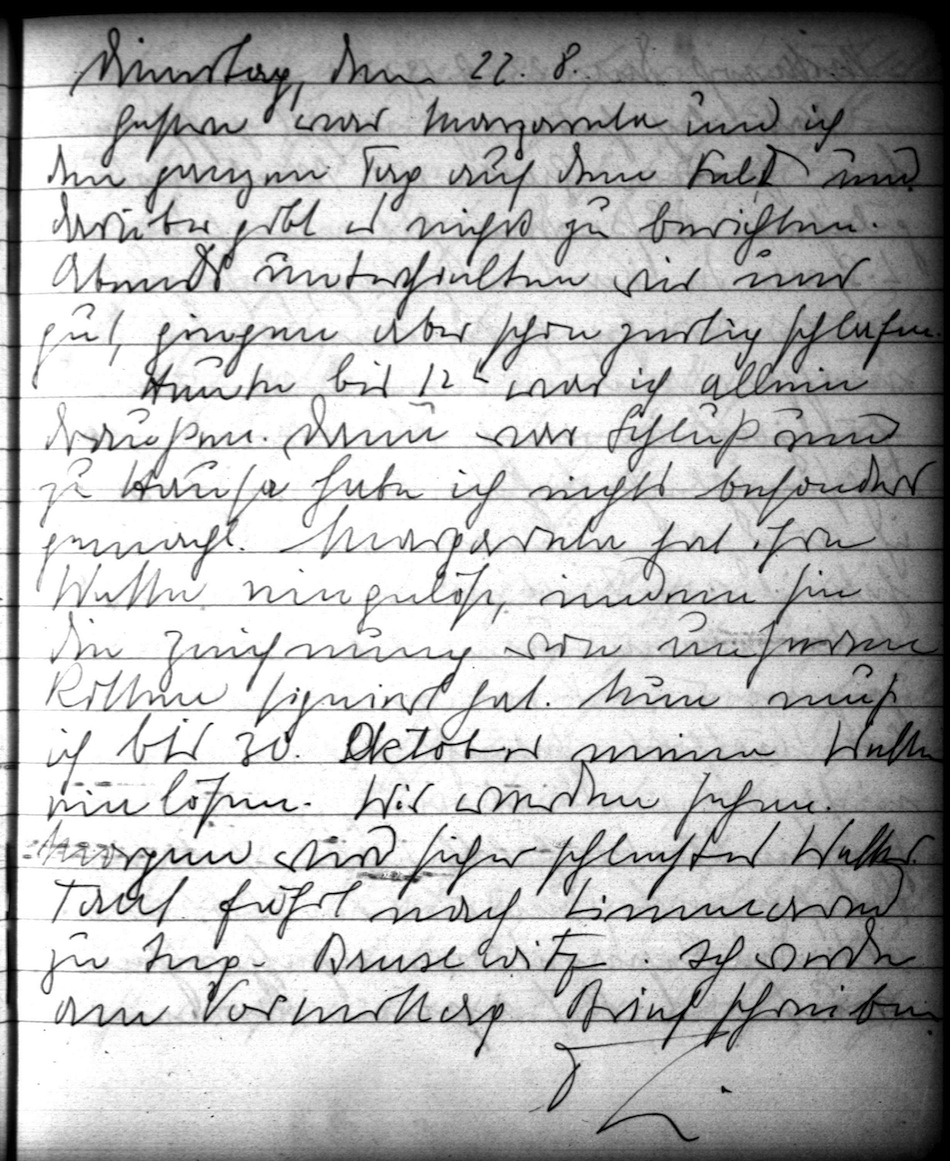 Dienstag, den 22. 8.
Gestern war Margarete und ich
den ganzen Tag auf dem Feld und
darüber gibt es nichts zu berichten.
Abends unterhielten wir uns
gut, gingen aber schon zeitig schlafen.
Heute bis 12 war ich allein
draußen. Dann war Schluß und
zu Hause habe ich nichts besonders
gemacht. Margarete hat ihre
Wette eingelöst, indem sie
die Zeichnung von unserem
signiert hat. Nun muß
ich bis 30. Oktober meine Wette
einlösen. Wir werden sehen.
Morgen wird sicher schlechtes Wetter.
fährt nach
zu Ing. Ich werde
am Vormittag Brief schreiben